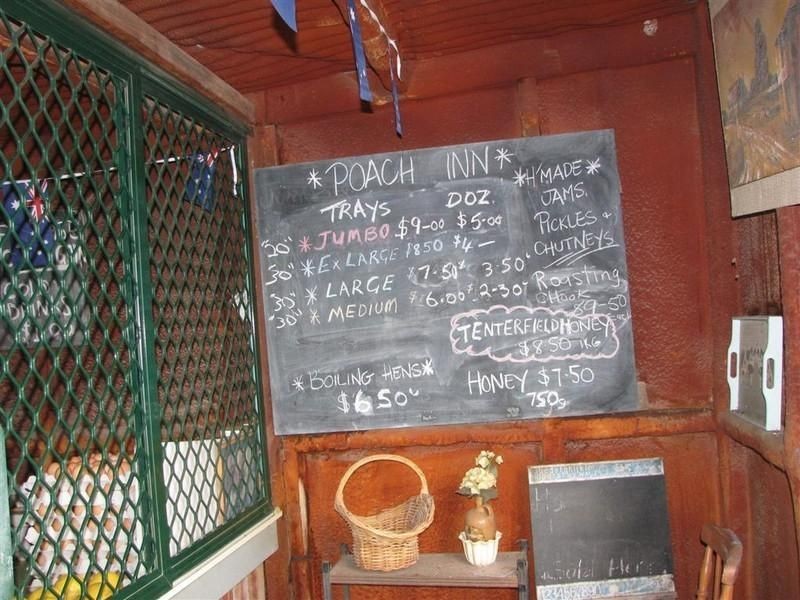 *POACH INN*
TRAYS DOZ.
"20" *JUMBO $9-00 $5-00
"30" *Ex LARGE $850 $4-
"30" *LARGE $7-50 3-50
"30" *MEDIUM $6.00 2-30
*BOILING HENS*
$6 50
*H'MADE*
JAMS,
PICKLES &
CHUTNEYS
Roasting
Chook
$9-50
Each
TENTERFIELD HONEY
$8.50 1KG
HONEY $7.50
750g
Sold Here
DRINKS